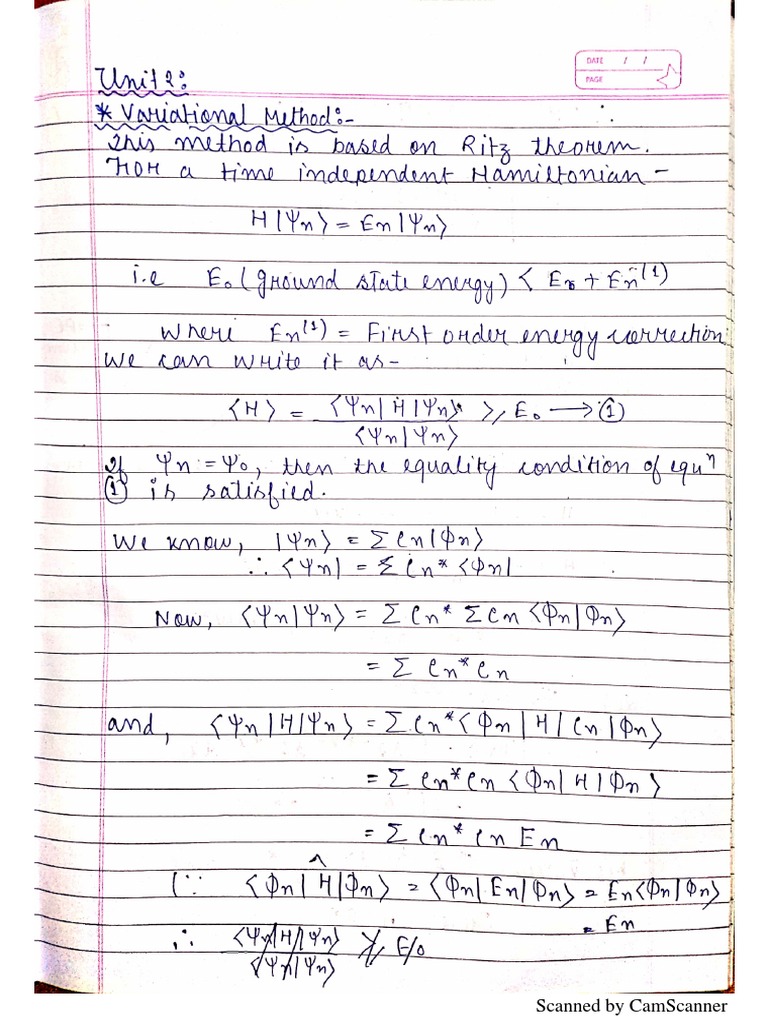 DATE / /
PAGE
Unit 2:
* Variational Method:-
This method is based on Ritz theorem.
For a time independent Hamiltonian -
H|Ψn⟩ = En|Ψn⟩
i.e E₀ (ground state energy) < E₀ + En⁽¹⁾
where En⁽¹⁾ = First order energy correction
We can write it as-
⟨H⟩ = ⟨Ψn|H|Ψn⟩ ⩾ E₀ → ①
⟨Ψn|Ψn⟩
If Ψn = Ψ₀, then the equality condition of equⁿ
① is satisfied.
We know, |Ψn⟩ = Σ Cn|Φn⟩
∴ ⟨Ψn| = Σ Cn* ⟨Φn|
Now, ⟨Ψn|Ψn⟩ = Σ Cn* Σ Cn ⟨Φn|Φn⟩
= Σ Cn* Cn
and, ⟨Ψn|H|Ψn⟩ = Σ Cn* ⟨Φn|H|Cn|Φn⟩
= Σ Cn* Cn ⟨Φn|H|Φn⟩
= Σ Cn* Cn En
(∵ ⟨Φn|Ĥ|Φn⟩ = ⟨Φn|En|Φn⟩ = En⟨Φn|Φn⟩
= En
∴ ⟨Ψn|H|Ψn⟩ ⩾ E₀
⟨Ψn|Ψn⟩
Scanned by CamScanner